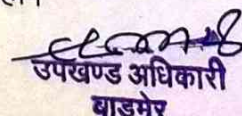 उपखण्ड अधिकारी
बाडमेर